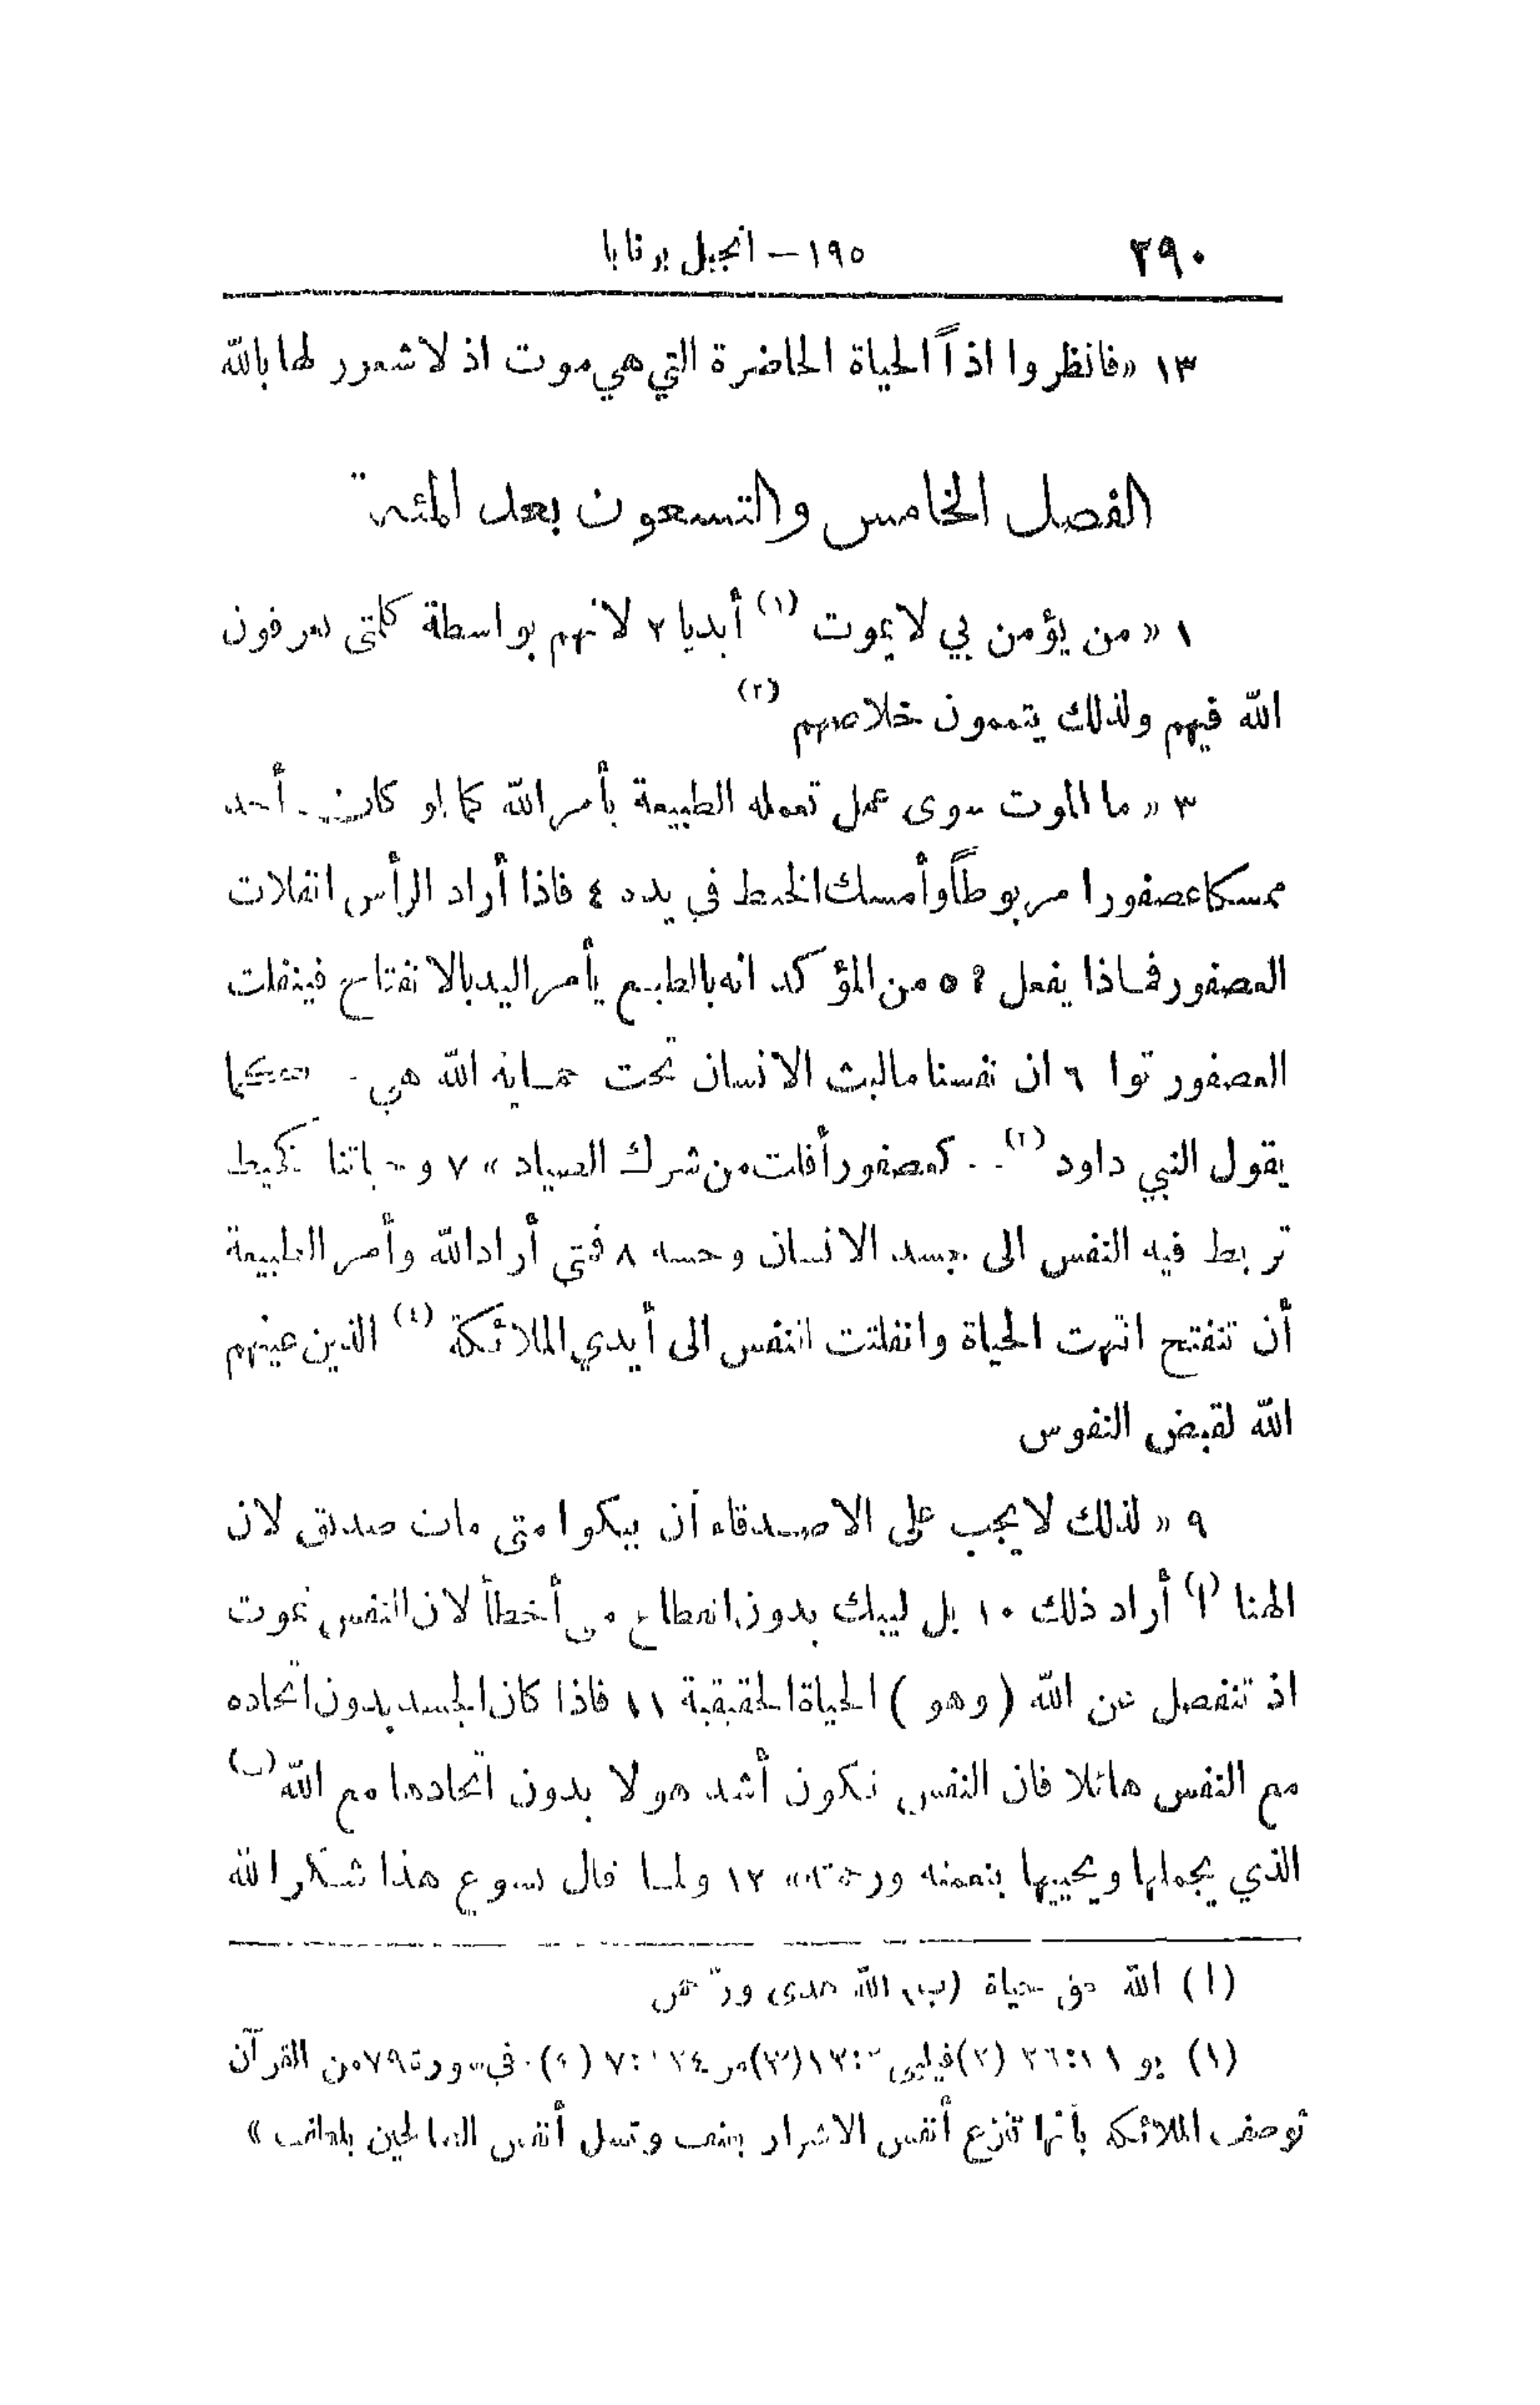 ٢٩٠ ١٩٥ – انجيل برنابا
١٣ «فانظروا اذاً الحياة الحاضرة التي هي موت اذ لا شعور لها بالله
الفصل الخامس والتسعون بعد المئة
١ «من يؤمن بي لا يموت (١) أبديا ٢ لانهم بواسطة كلمتي يعرفون
الله فيهم ولذلك يتممون خلاصهم (٢)
٣ «ما الموت سوى عمل تعمله الطبيعة بأمر الله كما لو كان أحد
ممسكا عصفورا مربوطاً وأمسك الخيط في يده ٤ فاذا أراد الرأس انفلات
العصفور فماذا يفعل ؟ ٥ من المؤكد انه بالطبع يأمر اليد بالانفتاح فينفلت
العصفور توا ٦ ان نفسنا ما لبث الانسان تحت حماية الله هي كما
يقول النبي داود كعصفور أفلت من شرك الصياد» ٧ وحياتنا كخيط
تربط فيه النفس الى جسد الانسان وحسه ٨ فمتى أراد الله وأمر الطبيعة
أن تنفتح انتهت الحياة وانفلتت النفس الى أيدي الملائكة (٤) الذين عينهم
الله لقبض النفوس
٩ «لذلك لا يجب على الاصدقاء أن يبكوا متى مات صديق لان
الهنا (ا) أراد ذلك ١٠ بل ليبك بدون انقطاع متى أخطأ لان النفس تموت
اذ تنفصل عن الله (وهو) الحياة الحقيقية ١١ فاذا كان الجسد بدون اتحاده
مع النفس هائلا فان النفس تكون أشد هولا بدون اتحادها مع الله (ب)
الذي يجملها ويحييها بنعمته ورحمته» ١٢ ولما قال يسوع هذا شكر الله
(ا) الله حياة (ب) الله هدى
(١) يو ١١: ٢٦ (٢) فيلبي (٣) مز (٤) في سورة ٧٩ من القرآن
توصف الملائكة بأنها تنزع أنفس الاشرار بعنف وتسل أنفس الصالحين بلطف»